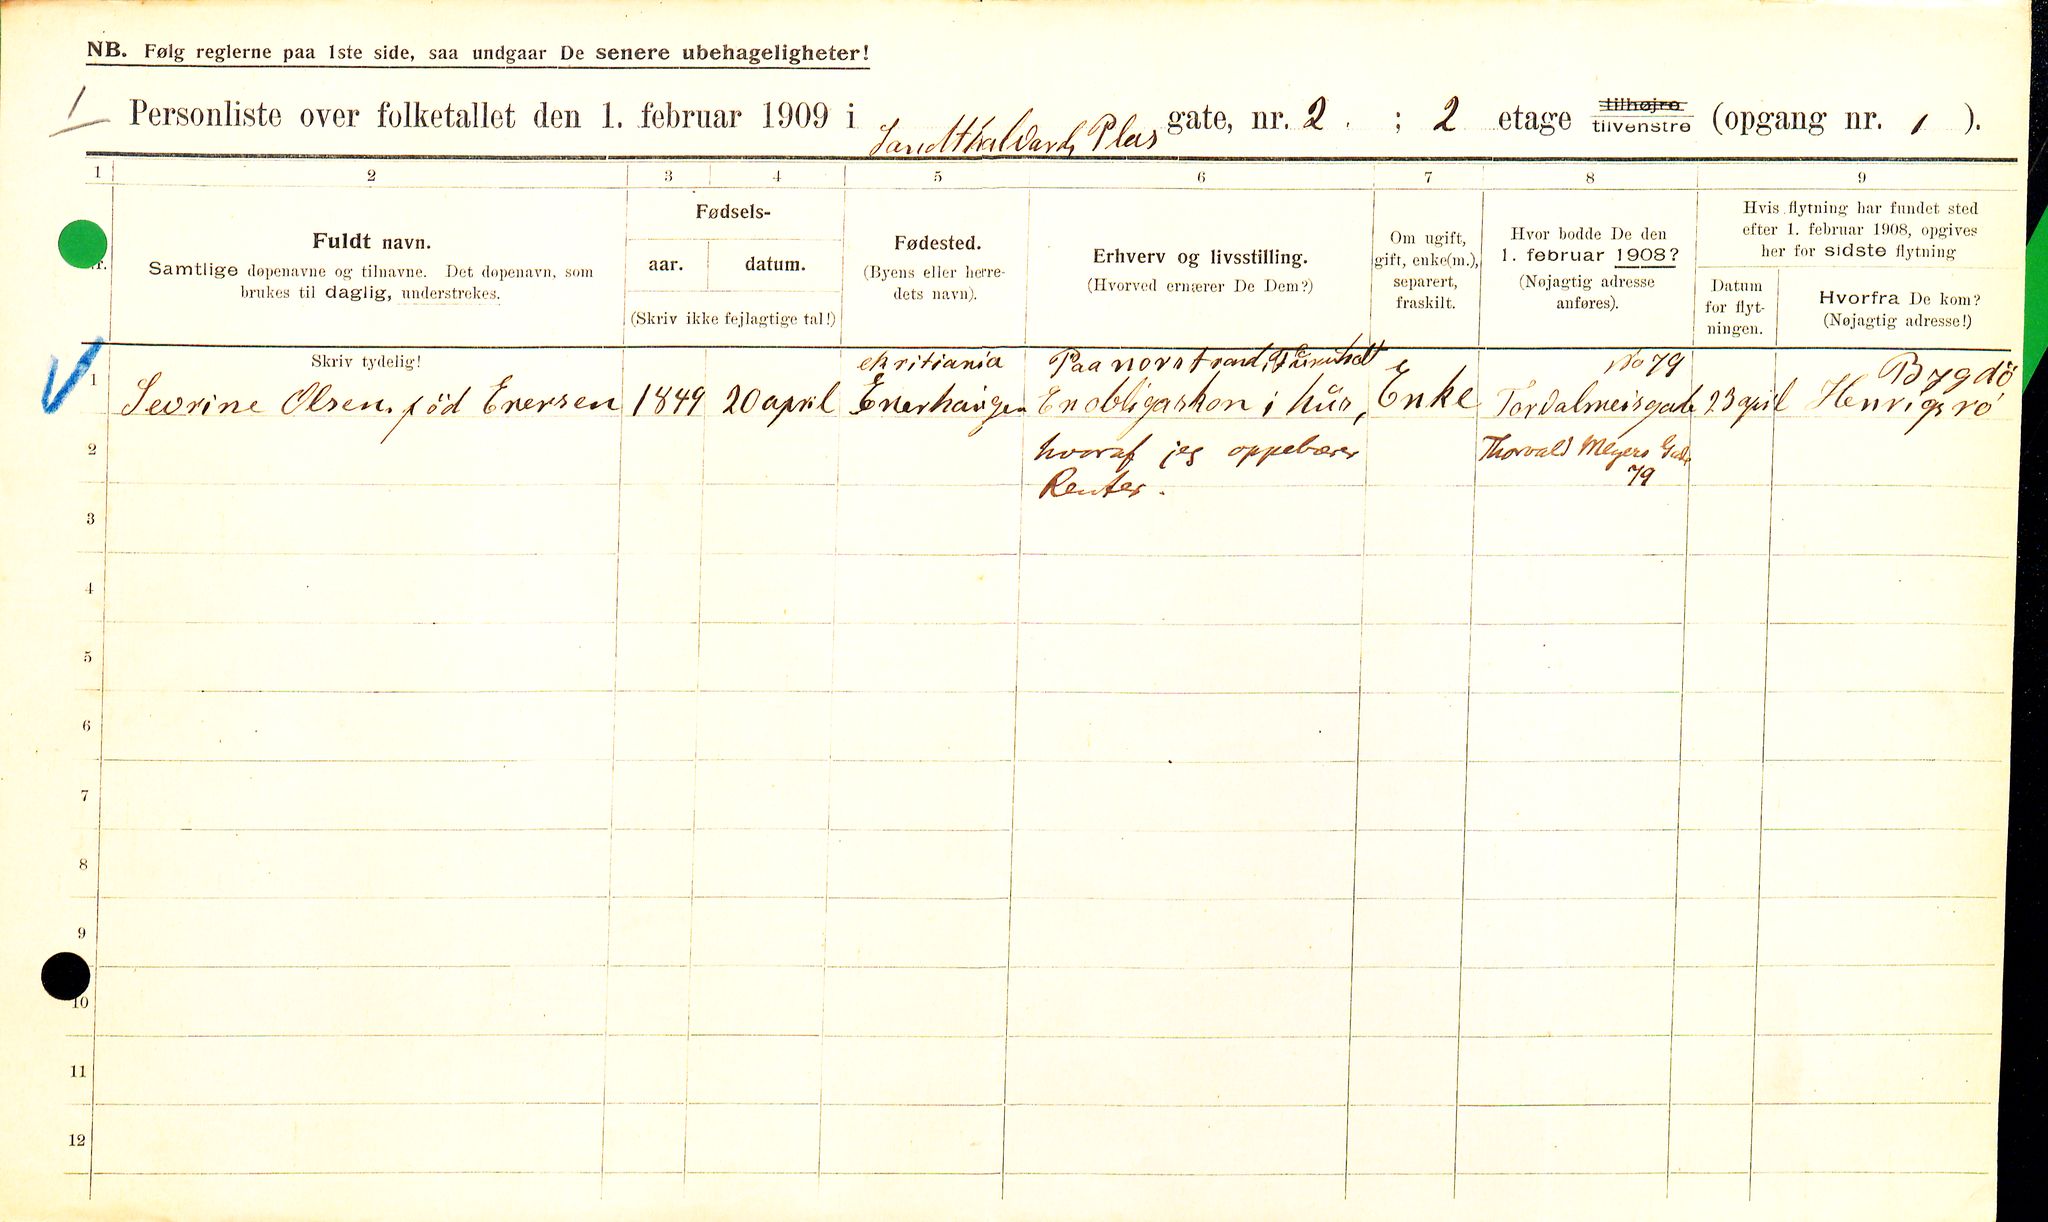 NB. Følg reglerne paa 1ste side, saa undgaar De senere ubehageligheter!
1
Personliste over folketallet den 1. februar 1909 i Sandthalvards Plas gate, nr. 2 ; 2 etage tilhøjre tilvenstre (opgang nr. 1 ).
1 2 3 4 5 6 7 8 9
Nr.
Fuldt navn.
Samtlige døpenavne og tilnavne. Det døpenavn, som
brukes til daglig, understrekes.
Fødsels-
aar. datum.
(Skriv ikke fejlagtige tal!)
Fødested.
(Byens eller herre-
dets navn).
Erhverv og livsstilling.
(Hvorved ernærer De Dem?)
Om ugift,
gift, enke(m.),
separert,
fraskilt.
Hvor bodde De den
1. februar 1908?
(Nøjagtig adresse
anføres).
Hvis flytning har fundet sted
efter 1. februar 1908, opgives
her for sidste flytning
Datum
for flyt-
ningen.
Hvorfra De kom?
(Nøjagtig adresse!)
Skriv tydelig!
chritiania Paa norstrand No 79 Bygdö
1 Sevrine Olsen född Enersen 1849 20 april Enerhaugen En obligashon i hüs, Enke Tordalmeisgade 23 april Henrigsro
2 hvoraf jeg oppebærer Thorvald Meyers Gade
Renter. 79
3
4
5
6
7
8
9
10
11
12